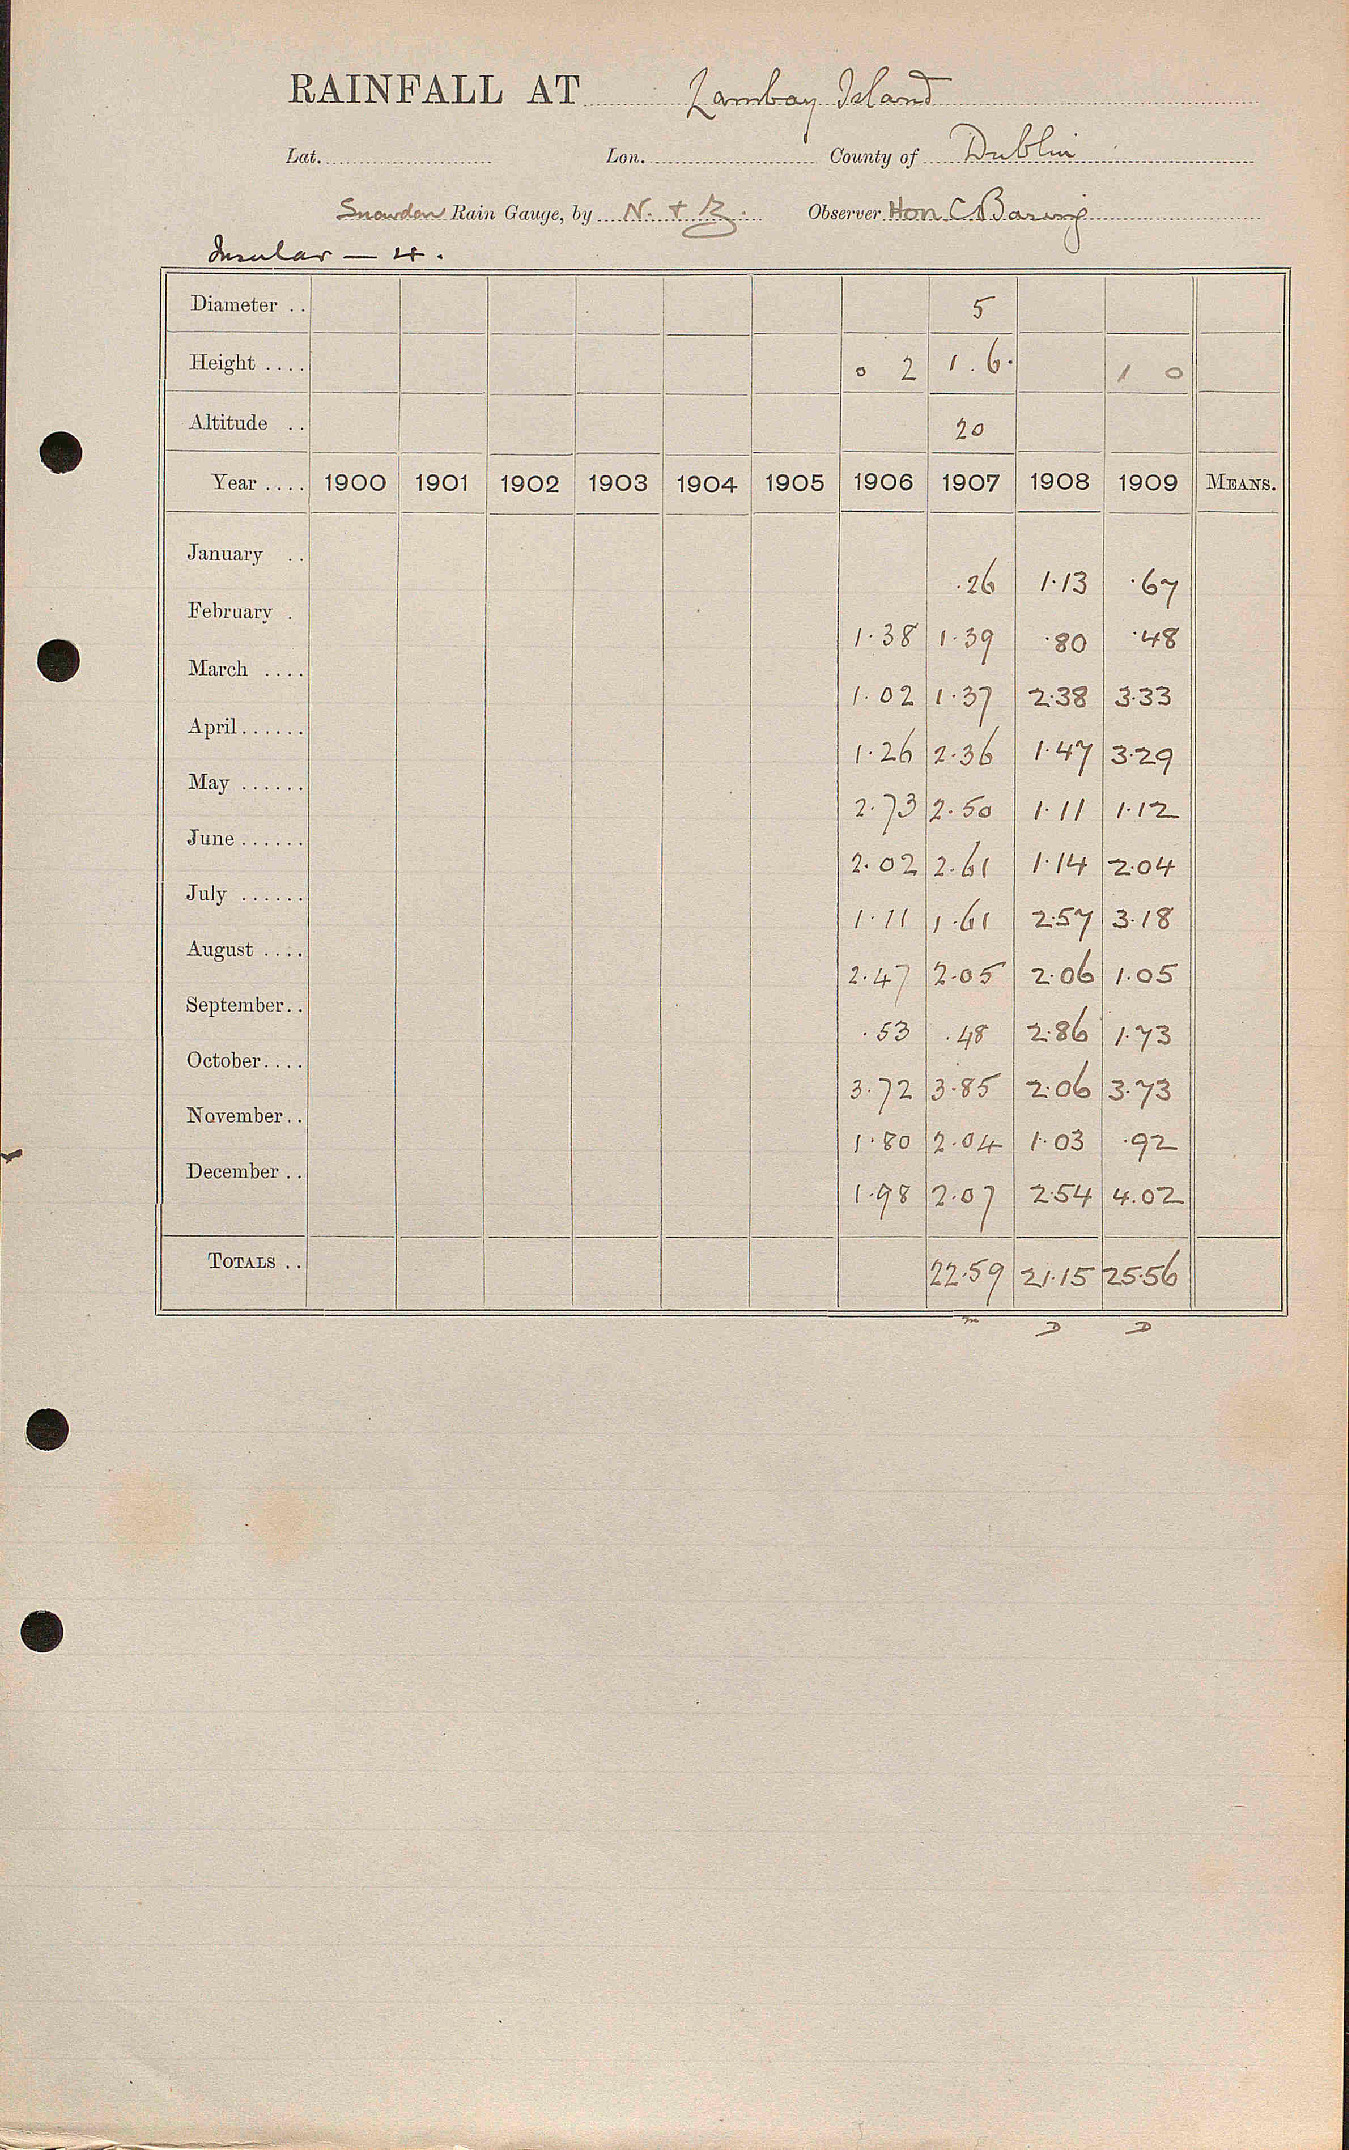 RAINFALL AT Lambay Island
Lat. Lon. County of Dublin
Snowdon Rain Gauge, by N. + Z. Observer Hon C Baring
Insular — 4.
Diameter .. 5
Height .... 0 2 1.6. 1 0
Altitude .. 20
Year .... 1900 1901 1902 1903 1904 1905 1906 1907 1908 1909 MEANS.
January .. .26 1.13 .67
February . 1.38 1.39 .80 .48
March .... 1.02 1.37 2.38 3.33
April...... 1.26 2.36 1.47 3.29
May ...... 2.73 2.50 1.11 1.12
June...... 2.02 2.61 1.14 2.04
July ...... 1.11 1.61 2.57 3.18
August .... 2.47 2.05 2.06 1.05
September.. .53 .48 2.86 1.73
October.... 3.72 3.85 2.06 3.73
November.. 1.80 2.04 1.03 .92
December .. 1.98 2.07 2.54 4.02
TOTALS .. 22.59 21.15 25.56
m D D